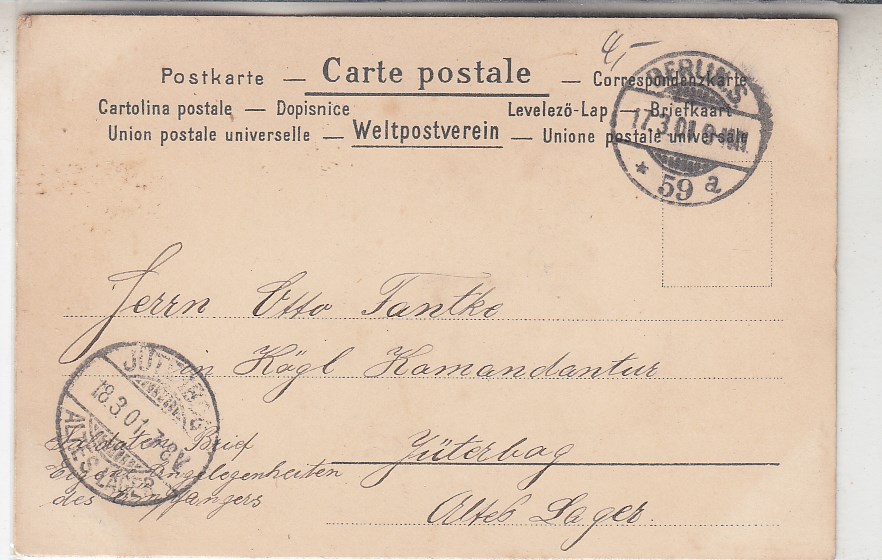 Postkarte — Carte postale — Correspondenzkarte
Cartolina postale — Dopisnice Levelező-Lap — Briefkaart
Union postale universelle — Weltpostverein — Unione postale universale
BERLIN. S
17.3.01.
* 59 a
Herrn Otto Tantke
in Kögl Kamandantur
JÜTERBOG
18.3.01.
ALTES LAGER
Soldaten Brief
Eigene Angelegenheiten
des Empfängers
Jüterbog
Altes Lager.